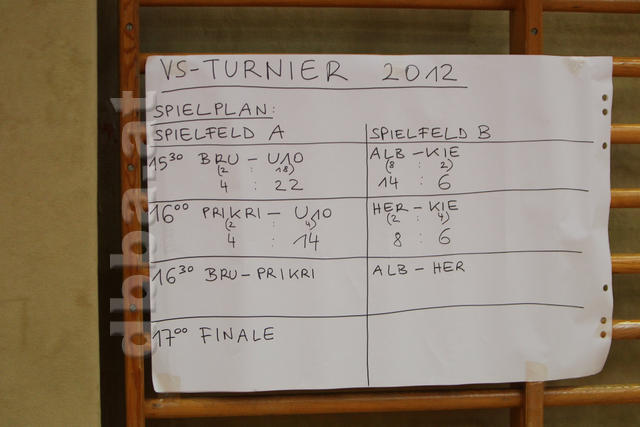 VS-TURNIER 2012
SPIELPLAN:
SPIELFELD A SPIELFELD B
15³⁰ BRU - U10 ALB - KIE
(2 : 18) (8 : 2)
4 : 22 14 : 6
16⁰⁰ PRIKRI - U10 HER - KIE
(2 : 4) (2 : 4)
4 : 14 8 : 6
16³⁰ BRU - PRIKRI ALB - HER
17⁰⁰ FINALE
dbba.at